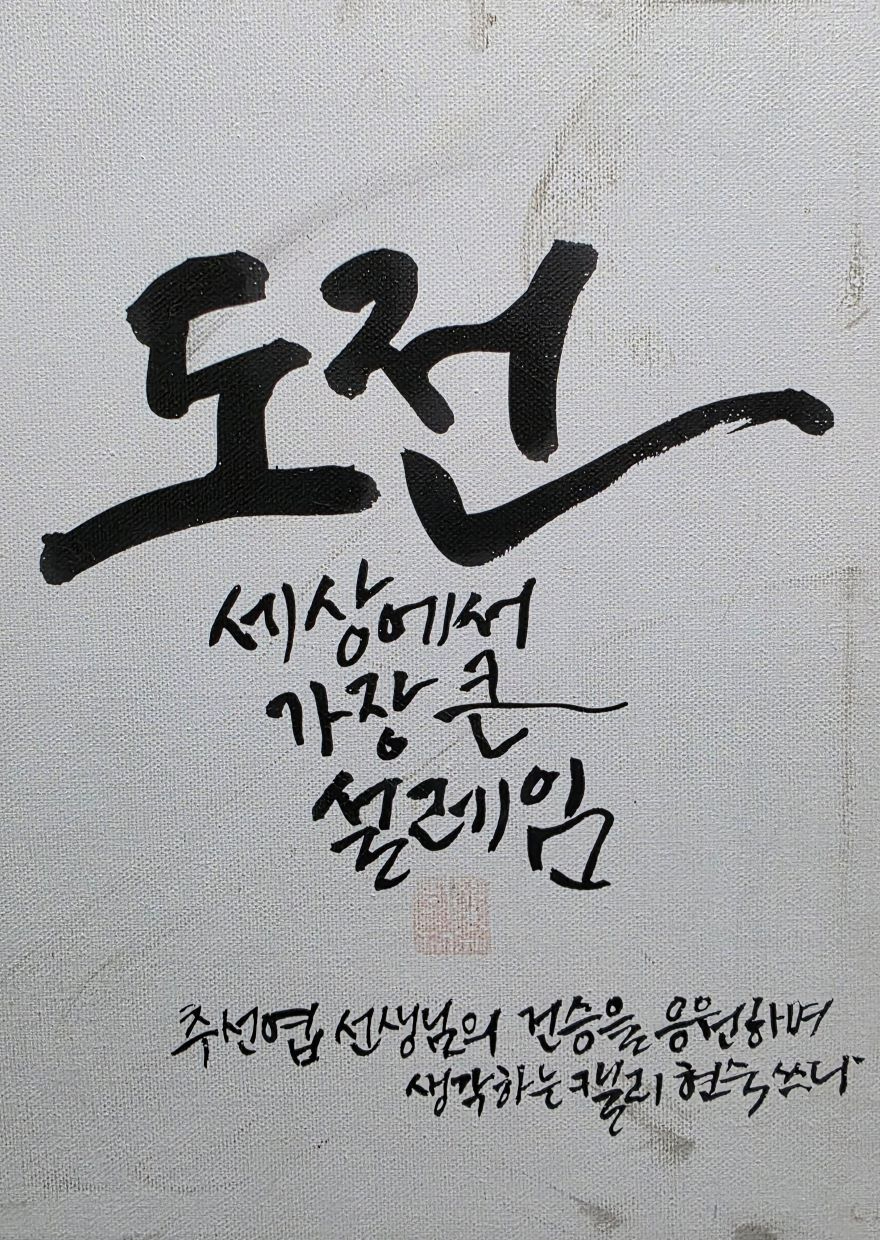 도전
세상에서
가장 큰
설레임
추선엽 선생님의 건승을 응원하며
생각하는 캘리 현숙 쓰다